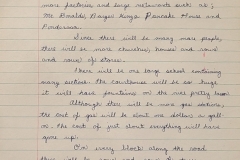 more factories and large restaurants such as;
Mc Donalds, Burger King, Pancake House and
Ponderosa.
Since there will be many more people,
there will be more churches, houses and rows
and rows of stores.
There will be one large school containing
many sections. The cafeterias will be so huge
it will have fountains on the
Although there will be more gas stations,
the cost of gas will be about one dollars a gall
on. The cost of just about everything will have
gone up.
On every block along the road
there will be